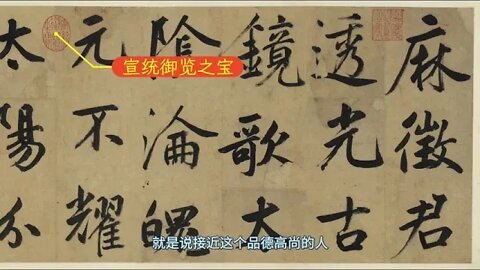 麻徵君
透光古
鏡歌大
陰淪魄
元不耀
太陽分
宣统御览之宝
就是说接近这个品德高尚的人